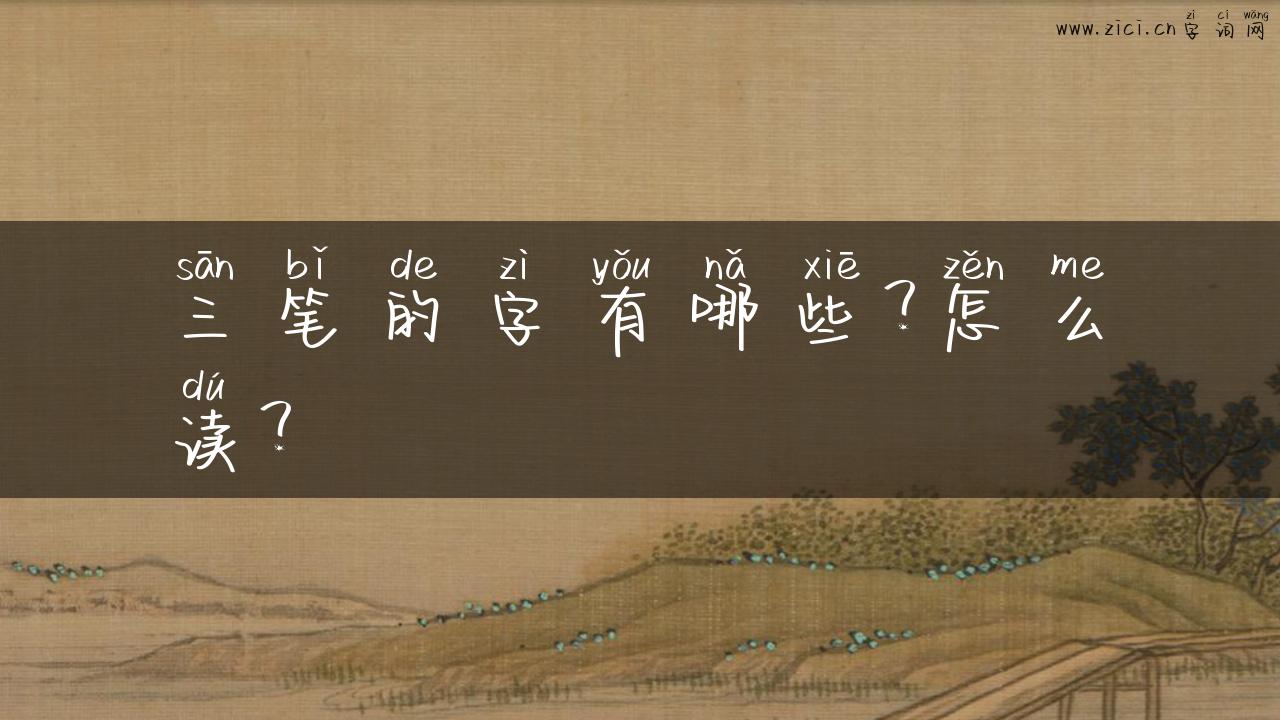 zì cí wǎng
www.zici.cn 字词网
sān bǐ de zì yǒu nǎ xiē zěn me
三笔的字有哪些？怎么
dú
读？